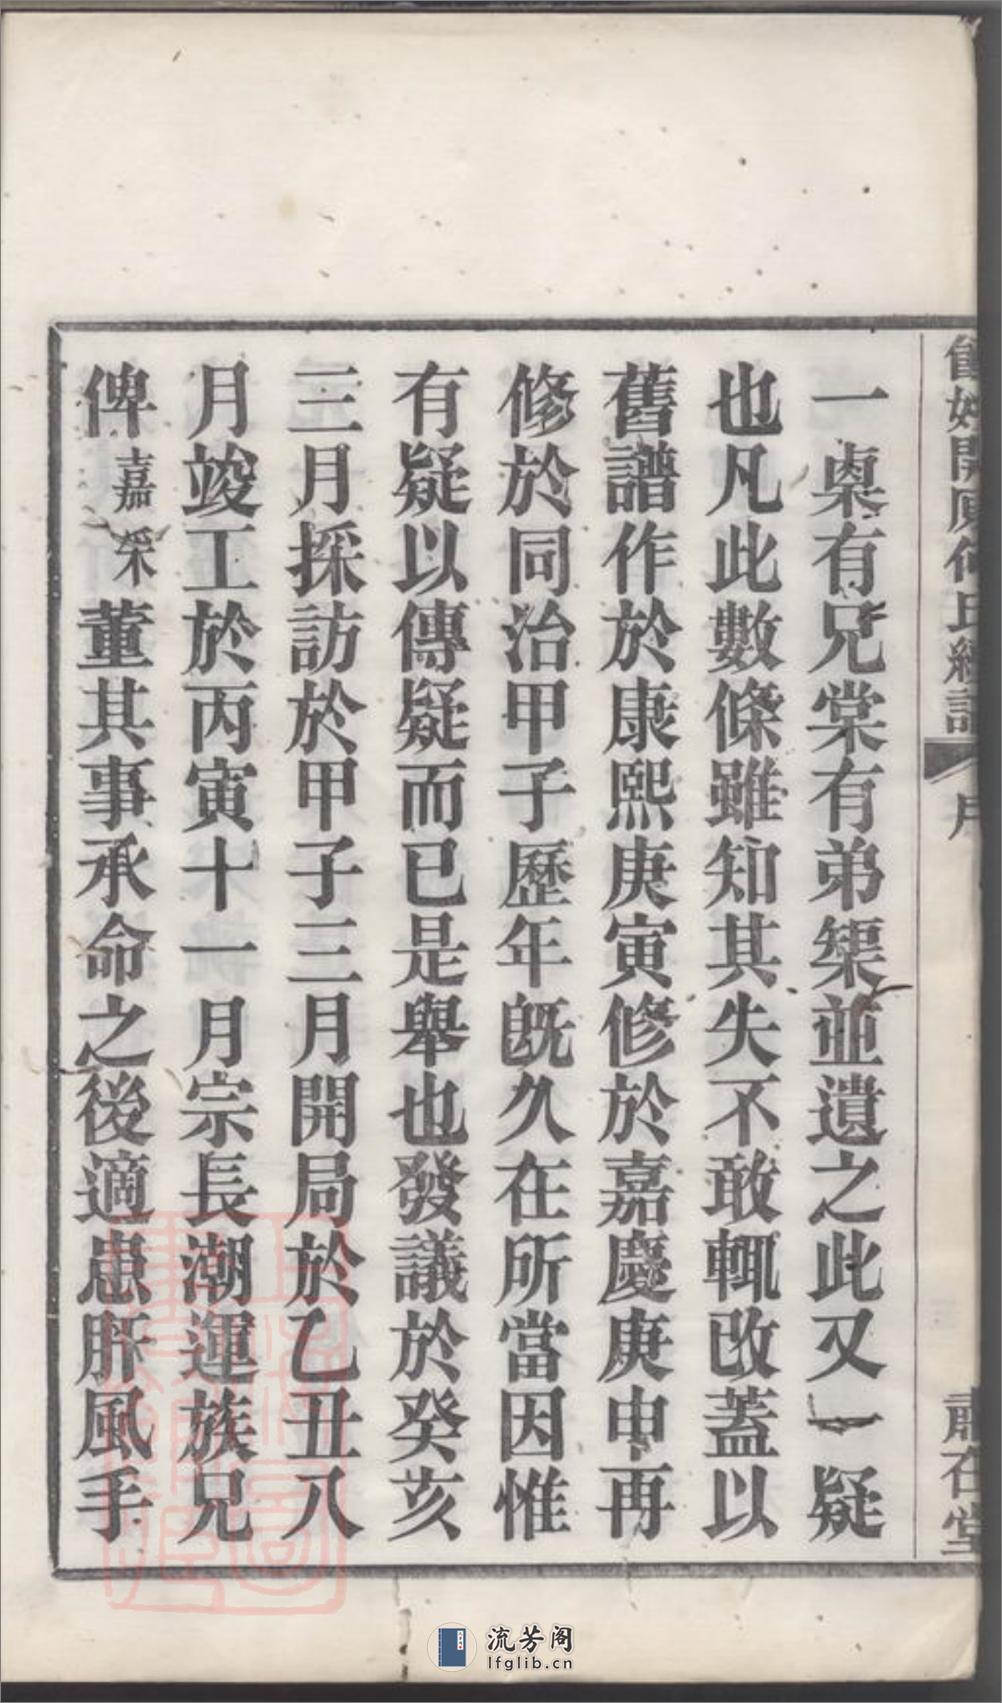 一㮚有兄棠有弟榘並遺之此又一疑
也凡此數條雖知其失不敢輒改蓋以
舊譜作於康熙庚寅修於嘉慶庚申再
修於同治甲子歷年旣久在所當因惟
有疑以傳疑而已是舉也發議於癸亥
三月採訪於甲子三月開局於乙丑八
月竣工於丙寅十一月宗長潮運族兄
俾嘉采董其事承命之後適患肝風手
流芳阁
lfglib.cn